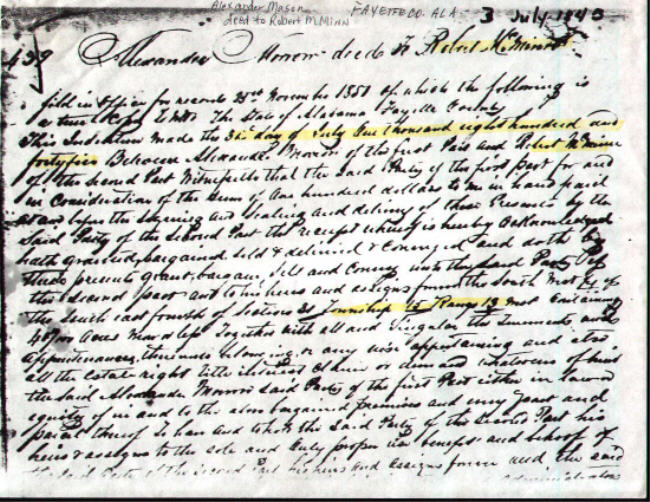 Alexander Mason
deed to Robert McMinn
FAYETTE CO. ALA
3 July 1845
439 Alexander Morrow deed to Robert McMinn
filed in Office for records 25th November 1851 of which the following is
a true Copy to wit The State of Alabama Fayette County
This Indenture made the 3d day of July One thousand eight hundred and
fortyfive Between Alexander Morrow of the first Part and Robert McMinn
of the Second Part Witnesseth that the Said Party of the first part for and
in Consideration of the Sum of One hundred dollars to me in hand paid
at and before the Signing and Sealing and delivery of these Presents by the
Said Party of the Second Part the receipt whereof is hereby acknowledged
hath granted, bargained Sold & delivered & Conveyed and doth by
these presents grant, bargain, Sell and Convey unto the said Party of
the second part and to his heirs and assigns forever the South West 1/4 of
the South east fourth of Section 31 Township 15 Range 13 West Containing
acres more or less Together with all and Singular the
appurtenances thereunto belonging or any wise appertaining and also
all the Estate right title interest Claim or demand whatsoever of him
the said Alexander Morrow Said Party of the first Part either in law or
equity of in and to the above bargained premises and every part and
parcel thereof To have and to hold the Said Party of the Second Part his
heirs & assigns to the sole and only proper use benefit and behoof of
the said Party of the second Part his heirs and assigns forever and the said
administrators